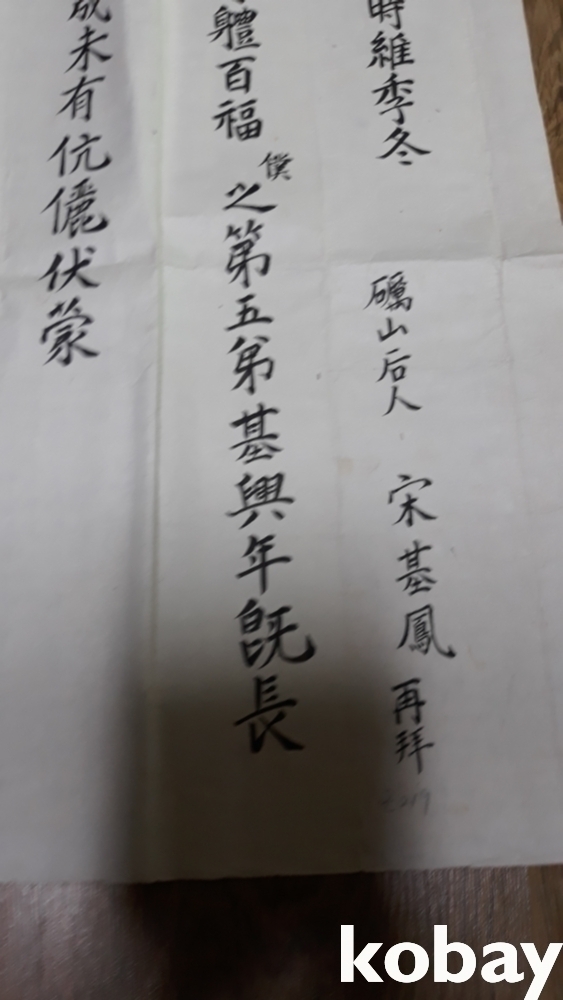 時維季冬
礪山后人 宋基鳳 再拜
體百福 僕之第五弟基興年旣長
成未有伉儷伏蒙
kobay